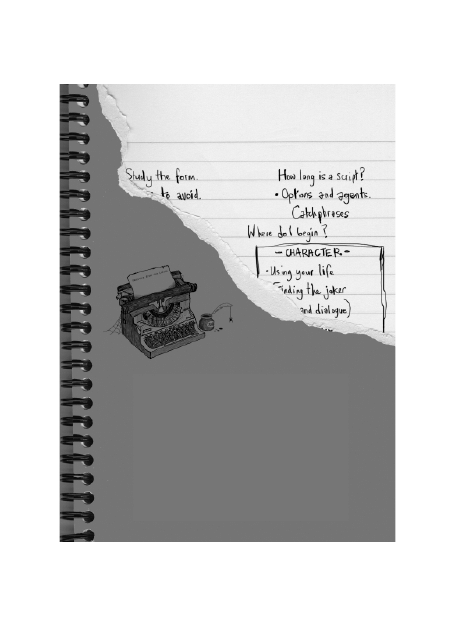 Study the form.
How long is a script?
to avoid.
• Options and agents.
Catchphrases
Where do I begin?
- CHARACTER -
• Using your life
Finding the joker
and dialogue)